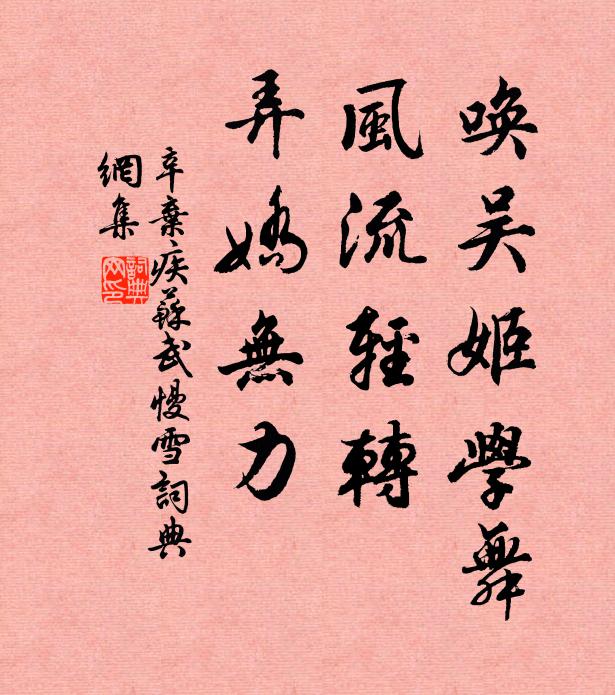 唤吴姬學舞
風流輕轉
弄嬌無力
辛棄疾蘇武慢雪詞典
網集
詞典網印